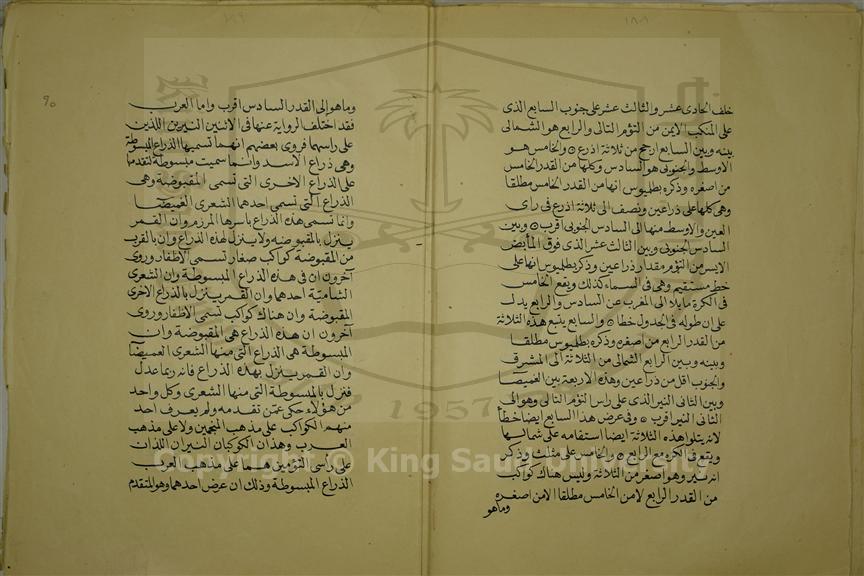 خلف الحادى عشر والثالث عشر على جنوب السابع الذى
على المنكب الايمن من التؤم التالى والرابع هو الشمالى
بينه وبين السابع ارجح من ثلاثة اذرع والخامس هو
الاوسط والجنوبى هو السادس وكلها من القدر الخامس
من اصغره وذكره بطلميوس انها من القدر الخامس مطلقا
وهى كلها على ذراعين ونصف الى ثلاثة اذرع فى راى
العين والاوسط منها الى السادس الجنوبى اقرب وبين
السادس الجنوبى وبين الثالث عشر الذى فوق المأبض
الايسر من التؤم مقدار ذراعين وذكر بطلميوس انها على
خط مستقيم وهى فى السماء كذلك ويقع الخامس
فى الكرة مايلا الى المغرب عن السادس والرابع يدل
على ان طوله فى الجدول خطا والسابع يتبع هذه الثلاثة
من القدر الرابع من اصغره وذكره بطلميوس مطلقا
وبينه وبين الرابع الشمالى من الثلاثة الى المشرق
والجنوب اقل من ذراعين وهذه الاربعة بين الغميصا
وبين الثانى النير الذى على راس التؤم التالى وهو الى
الثانى النير اقرب وفى عرض هذا السابع ايضا خطأ
لانه يتلوا هذه الثلاثة ايضا استقامه على شمالها
ويقع فى الكره مع الرابع والخامس على مثلث وذكر
انه نير وهو اصغر من الثلاثة وليس هناك كواكب
من القدر الرابع لا من الخامس مطلقا الا من اصغره
وماهو
90
وما هو الى القدر السادس اقرب واما العرب
فقد اختلف الرواية عنها فى الاثنين النيرين اللذين
على راسهما فروى بعضهم انهما تسميها الذراع المبسوطة
وهى ذراع الاسد وانما سميت مبسوطة لتقدمها
على الذراع الاخرى التى تسمى المقبوضة وهى
الذراع التى تسمى احدهما الشعرى الغميصا
وانما تسمى هذه الذراع باسرها المرزم وان القمر
ينزل بالمقبوضه ولا ينزل لهذه الذراع وان بالقرب
من المقبوضة كواكب صغار تسمى الاظفار وروى
آخرون ان فى هذه الذراع المبسوطة وان الشعرى
الشامية احدهما وان القمر ينزل بالذراع الاخرى
المقبوضة وان هناك كواكب تسمى الاظفار وروى
آخرون ان هذه الذراع هى المقبوضة وان
المبسوطة هى الذراع التى منها الشعرى الغميصا
وان القمر ينزل بهذه الذراع فانه ربما عدل
فنزل بالمبسوطة التى منها الشعرى وكل واحد
من هؤلاء حكى عمّن تقدمه ولم يعرف احد
منهم الكواكب على مذهب المنجمين ولا على مذهب
العرب وهذان الكوكبان النيران اللذان
على راسى التؤمين هما على مذهب العرب
الذراع المبسوطة وذلك ان عرض احدهما وهو المتقدم
1957
Copyright © King Saud University